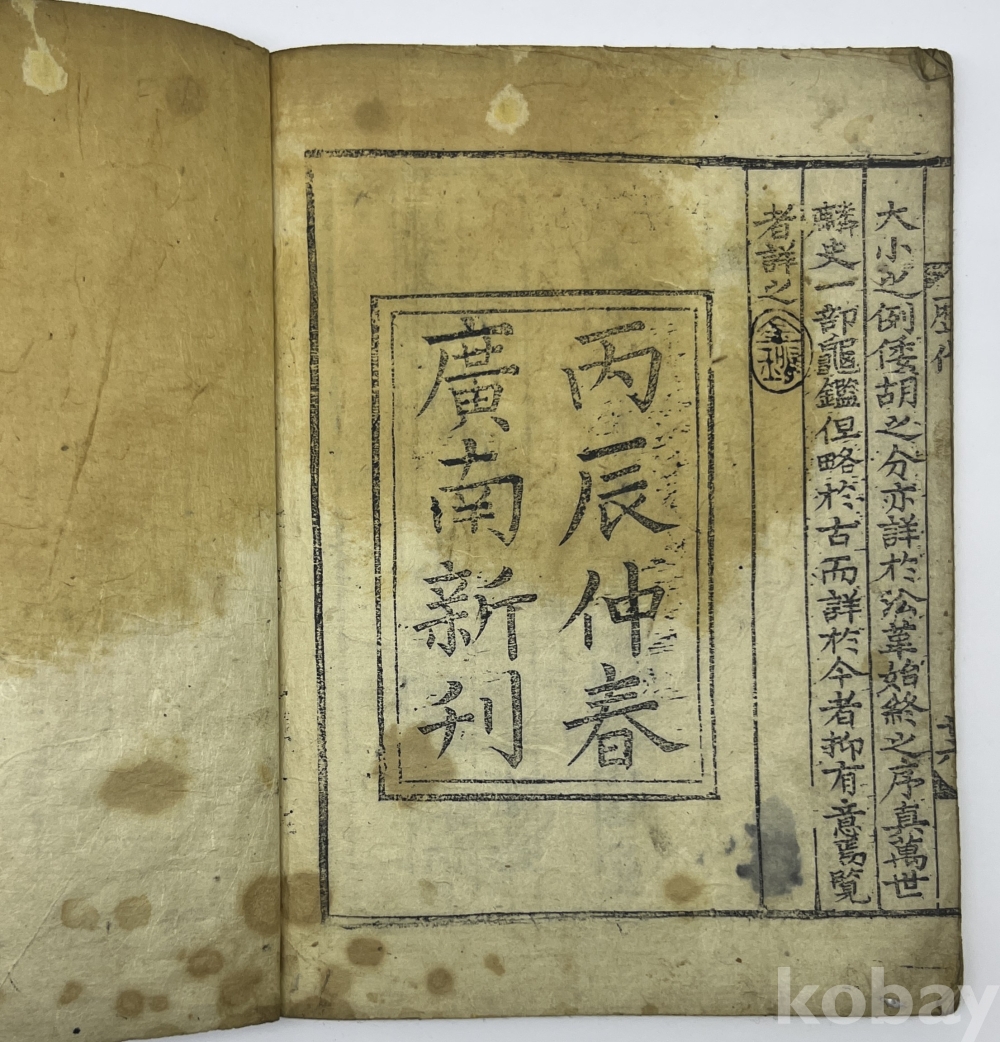 歷代
大小之例倭胡之分亦詳於沿革始終之序真萬世
麟史一部龜鑑但略於古而詳於今者抑有意焉覽
者詳之
丙辰仲春
廣南新刊
kobay